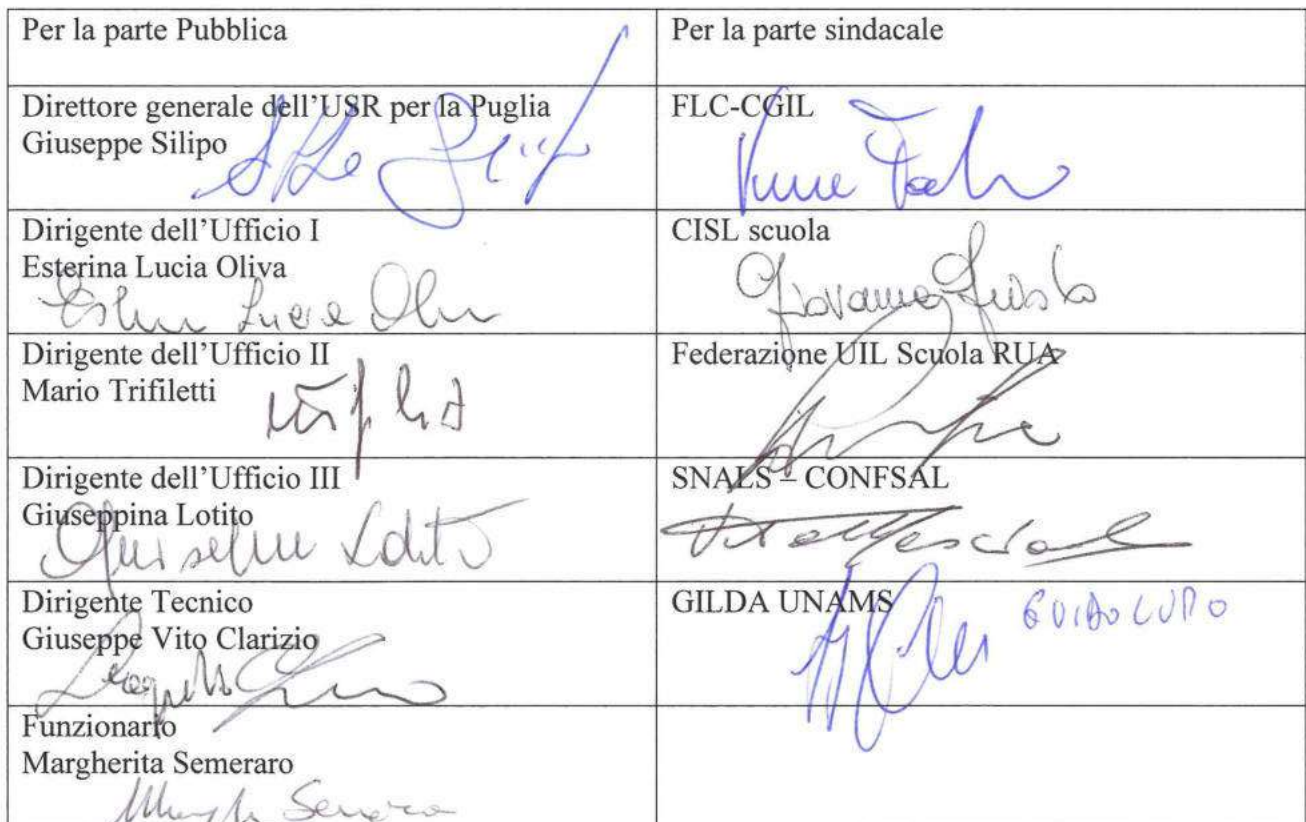 Per la parte Pubblica
Per la parte sindacale
Direttore generale dell'USR per la Puglia
Giuseppe Silipo
FLC-CGIL
Dirigente dell'Ufficio I
Esterina Lucia Oliva
CISL scuola
Dirigente dell'Ufficio II
Mario Trifiletti
Federazione UIL Scuola RUA
Dirigente dell'Ufficio III
Giuseppina Lotito
Lotito
SNALS – CONFSAL
Dirigente Tecnico
Giuseppe Vito Clarizio
GILDA UNAMS
Funzionario
Margherita Semeraro